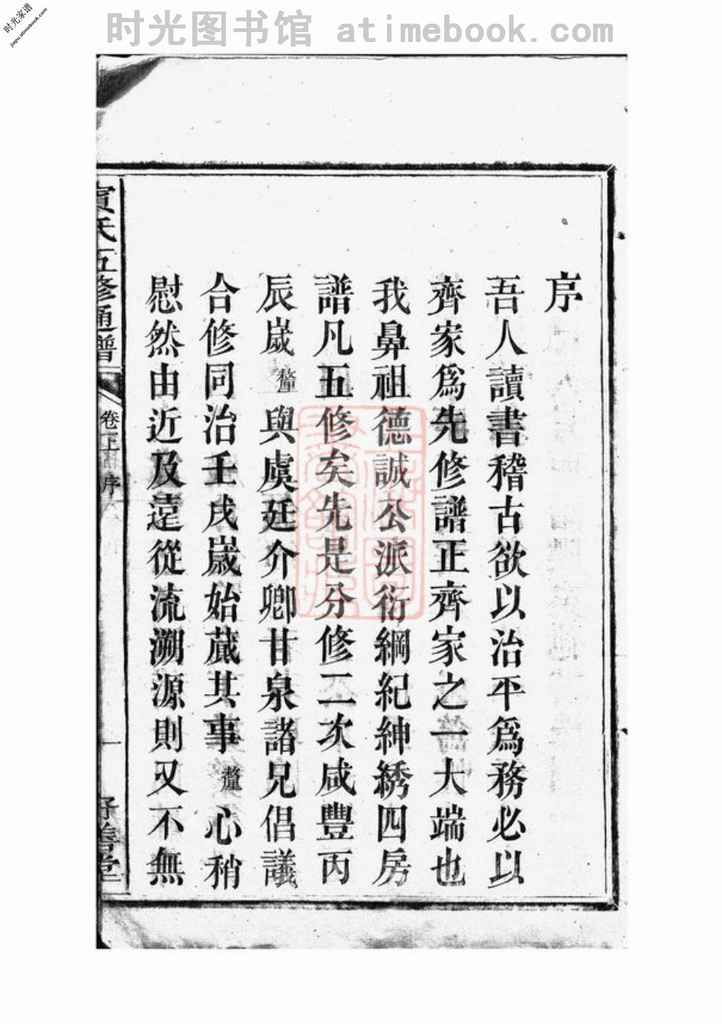 时光图书馆 atimebook.com
时光家谱
jiapu.atimebook.com
序
吾人讀書稽古欲以治平爲務必以
齊家爲先修譜正齊家之一大端也
我鼻祖德誠公派衍綱紀紳綉四房
譜凡五修矣先是分修二次咸豐丙
辰嵗釐與虞廷介卿甘泉諸兄倡議
合修同治壬戌嵗始蕆其事釐心稍
慰然由近及遠從流溯源則又不無
氏五修通譜
卷上
序
一
善堂